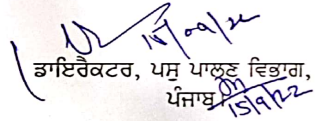 15/09/22
ਡਾਇਰੈਕਟਰ, ਪਸ਼ੂ ਪਾਲਣ ਵਿਭਾਗ,
ਪੰਜਾਬ
15/9/22